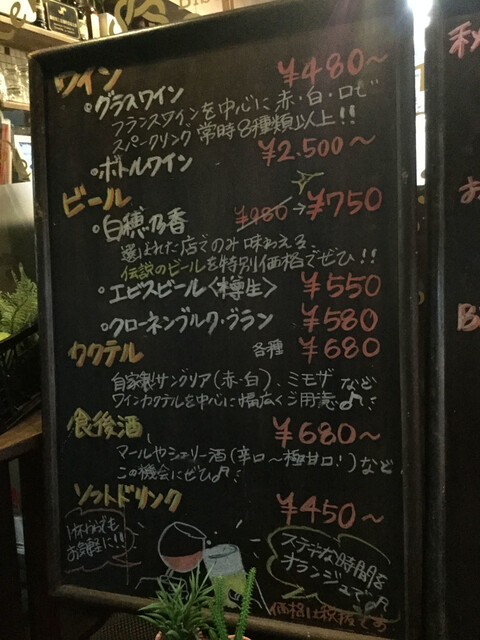 ワイン ¥480～
・グラスワイン
フランスワインを中心に 赤・白・ロゼ
スパークリング 常時8種類以上!!
・ボトルワイン ¥2.500～
ビール
・白穂乃香 ¥980 → ¥750
選ばれた店でのみ味わえる
伝説のビールを特別価格でぜひ!!
・エビスビール〈樽生〉 ¥550
・クローネンブルク・ブラン ¥580
カクテル 各種 ¥680
自家製サングリア(赤・白)、ミモザ など
ワインカクテルを中心に幅広くご用意♪
食後酒 ¥680～
マールやシェリー酒(辛口～極甘口!)など、
この機会にぜひ♪
ソフトドリンク ¥450～
1杯からでも
お気軽に!!
ステキな時間を
オランジュで♪
価格は税抜です
秋
お
B